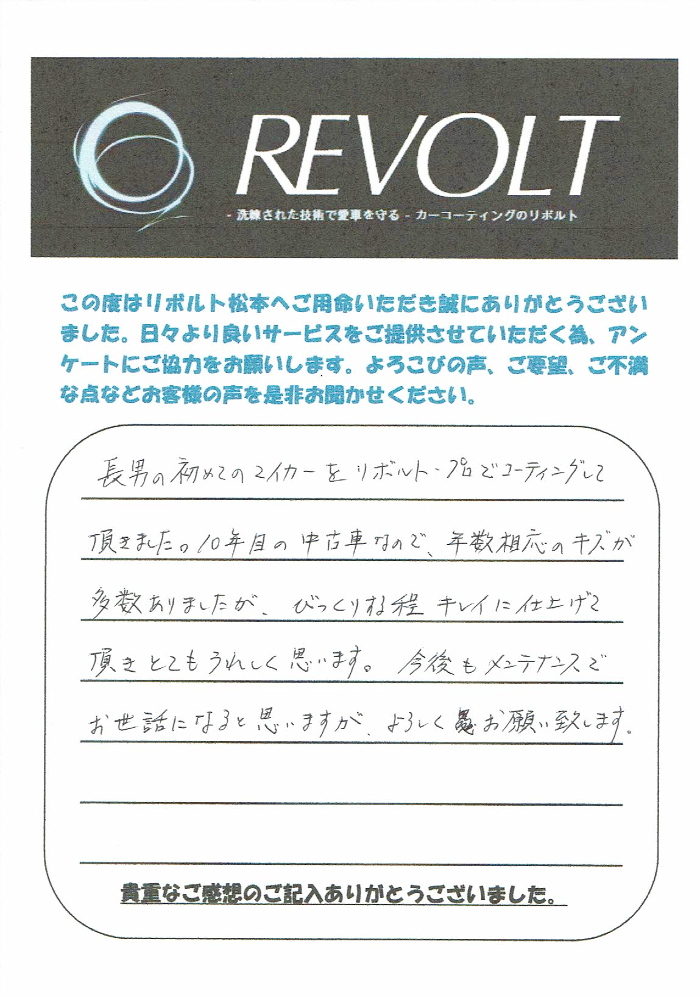 REVOLT
- 洗練された技術で愛車を守る - カーコーティングのリボルト
この度はリボルト松本へご用命いただき誠にありがとうござい
ました。日々より良いサービスをご提供させていただく為、アン
ケートにご協力をお願いします。よろこびの声、ご要望、ご不満
な点などお客様の声を是非お聞かせください。
長男の初めてのマイカーをリボルト・プロでコーティングして
頂きました。10年目の中古車なので、年数相応のキズが
多数ありましたが、びっくりする程キレイに仕上げて
頂きとてもうれしく思います。今後もメンテナンスで
お世話になると思いますが、よろしくお願い致します。
貴重なご感想のご記入ありがとうございました。